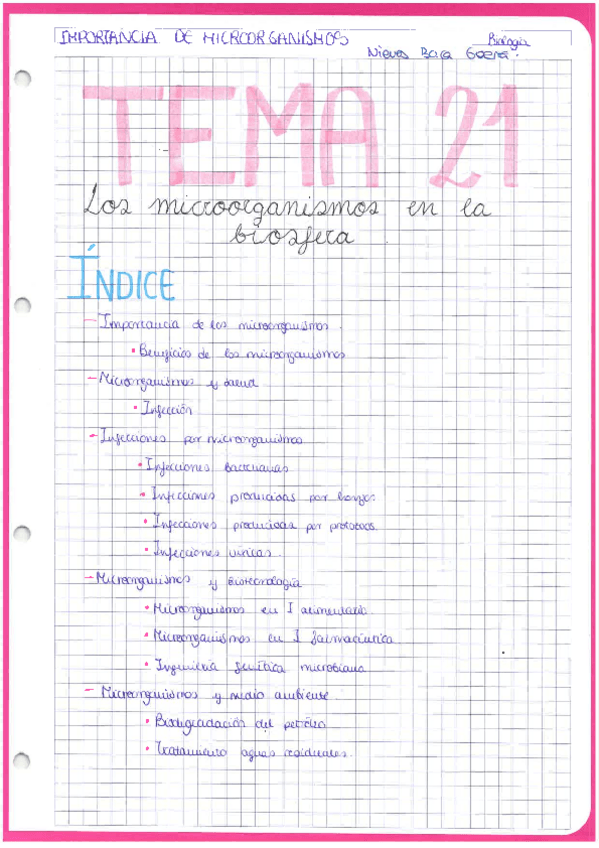 IMPORTANCIA DE MICROORGANISMOS
Biología
Nieves Bara
TEMA 21
Los microorganismos en la
biosfera
ÍNDICE
- Importancia de los microorganismos.
• Beneficios de los microorganismos
- Microorganismos y salud
• Infección
- Infecciones por microorganismos
• Infecciones bacterianas
• Infecciones producidas por hongos
• Infecciones producidas por protozoos.
• Infecciones víricas.
- Microorganismos y biotecnología
• Microorganismos en I alimentaria.
• Microorganismos en I farmacéutica
• Ingeniería genética microbiana
- Microorganismos y medio ambiente.
• Biodegradación del petróleo
• Tratamiento aguas residuales.